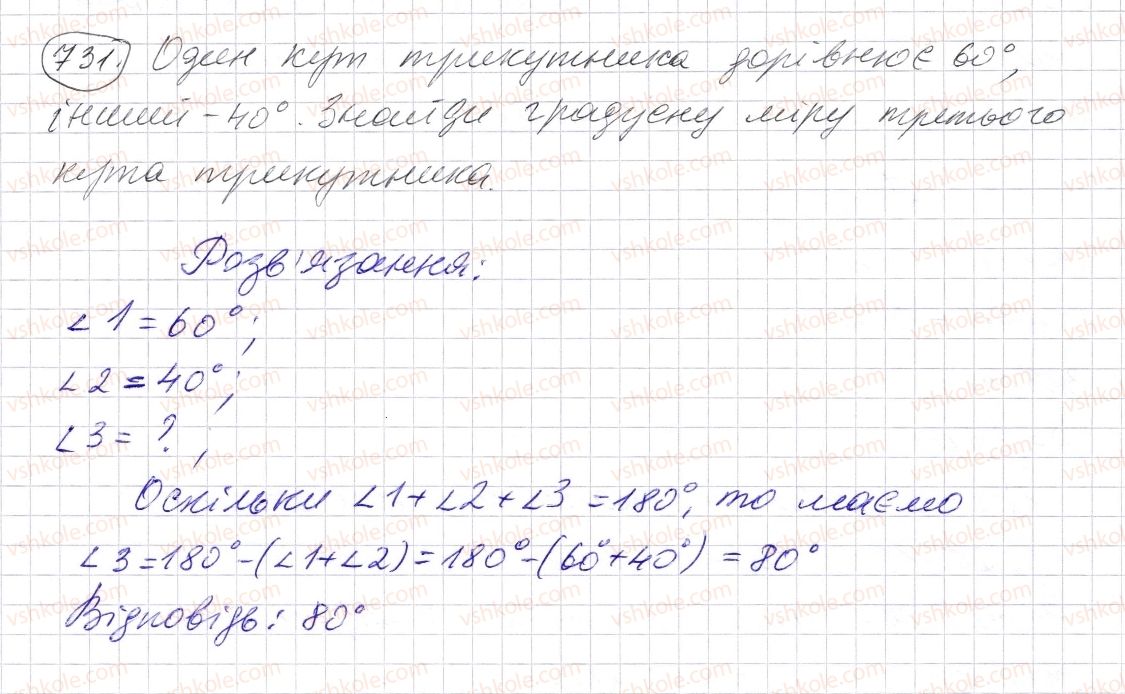 731. Один кут трикутника дорівнює 60°,
інший - 40°. Знайди градусну міру третього
кута трикутника.
Розв'язання:
∠1 = 60°;
∠2 = 40°;
∠3 = ?,
Оскільки ∠1+∠2+∠3 = 180°, то маємо
∠3 = 180° - (∠1+∠2) = 180° - (60°+40°) = 80°
Відповідь: 80°